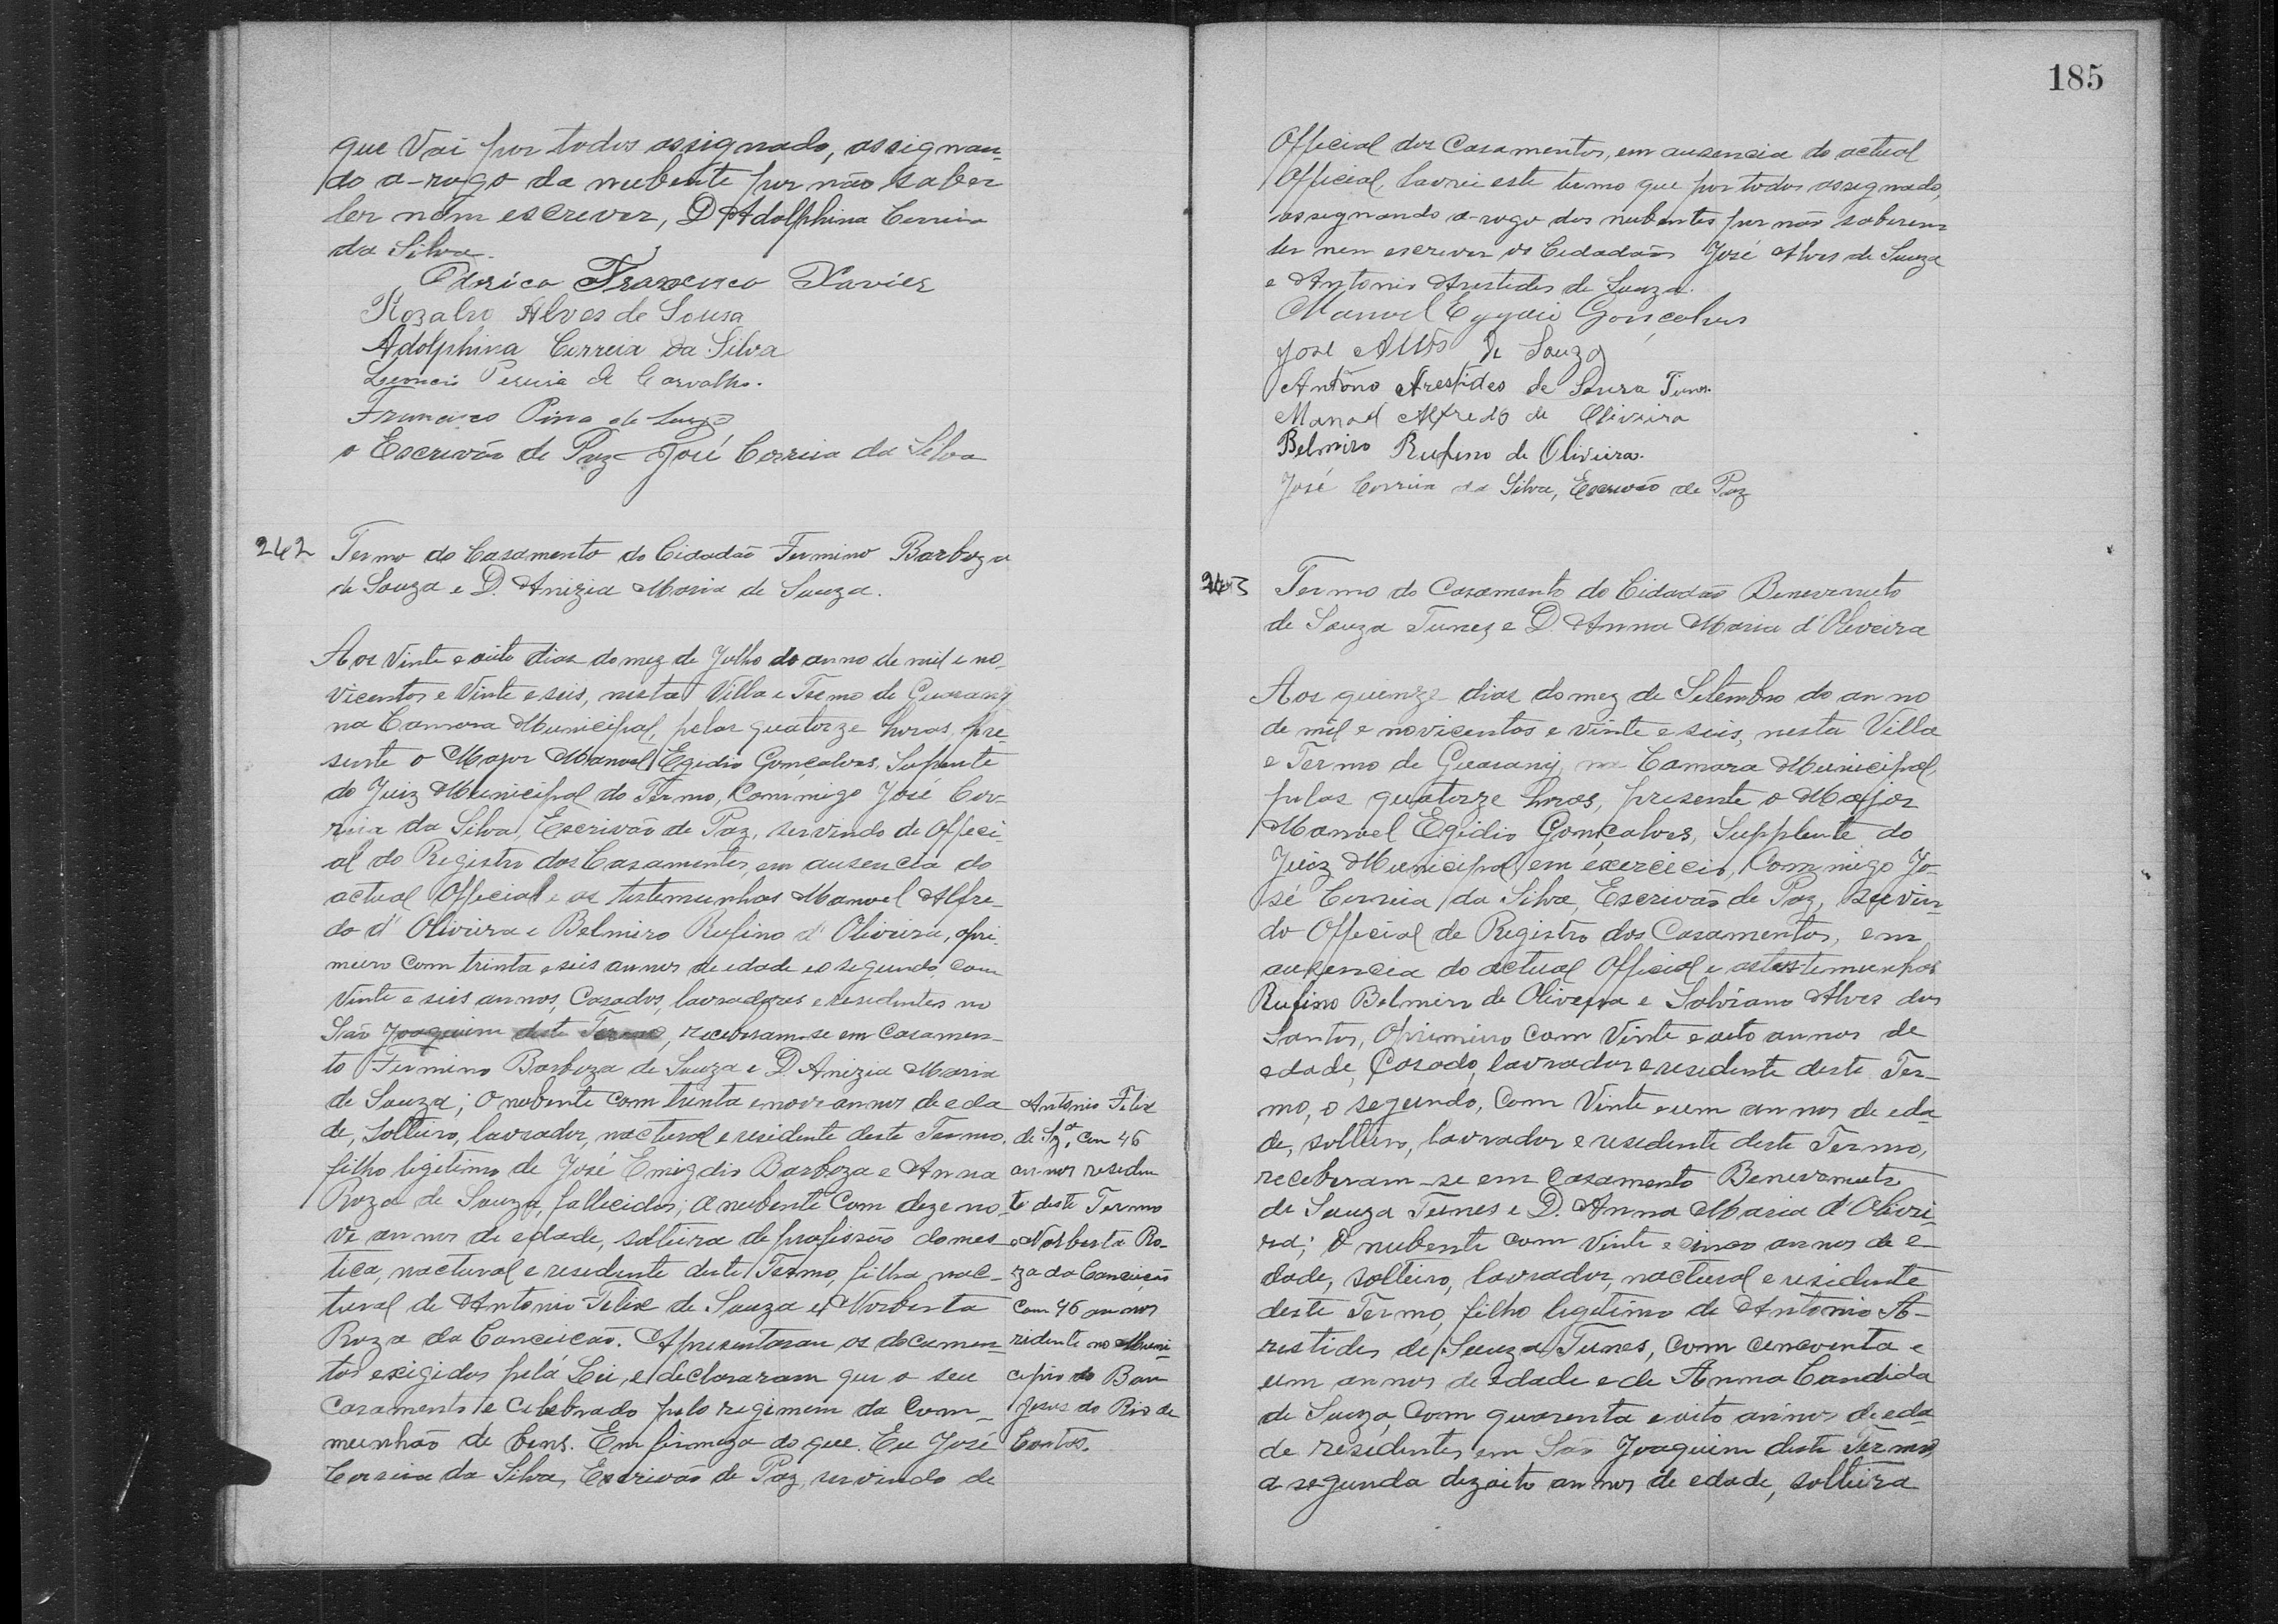 que Vai por todos assignado, assignan-
do a-rogo da nubente por não saber
ler nem escrever, D Adolphina Correia
da Silva.
Francisco Xavier
Alves de Sousa
Adolphina Correia da Silva
Leoncio Pereira de Carvalho.
Francisco Pina de Souza
o Escrivão de Paz José Correia da Silva
242 Termo do Casamento do Cidadão Firmino Barboza
de Souza e D. Anizia Maria de Souza.
Aos Vinte e oito dias do mez de Julho do anno de mil e no-
vicentos e Vinte e seis, nesta Villa e Termo de Guarany
na Camara Municipal, pelas quatorze horas, pre-
sente o Major Manoel Egidio Gonçalves, Suplente
do Juiz Municipal do Termo, Commigo José Cor-
reia da Silva, Escrivão de Paz, servindo de Offici-
al do Registro dos Casamentos, em ausencia do
actual Official e as testemunhas Manoel Alfre-
do d' Oliveira e Belmiro Rufino d' Oliveira, o pri-
meiro com trinta e seis annos de edade e o segundo, com
Vinte e seis annos, Casados, lavradores e residentes no
São Joaquim deste Termo, receberam-se em Casamen-
to Firmino Barboza de Souza e D. Anizia Maria
de Souza; O nubente com trinta e nove annos de eda
de, Solteiro, lavrador, nactural e residente deste Termo,
filho legitimo de José Emigdio Barboza e Anna
Roza de Souza, fallecidos; a nubente Com dezeno-
ve annos de edade, solteira de profissão domes-
tica, nactural e residente deste Termo, filha nac-
tural de Antonio Felix de Souza e Norberta
Roza da Conceição. Apresentaram os documen-
tos exigidos pela Lei, e declararam que o seu
Casamento é Celebrado pelo regimem da Com-
munhão de bens. Em firmeza do que. Eu José
Correia da Silva, Escrivão de Paz, servindo de
Antonio Felix
de Sza, com 46
annos residen
te deste Termo
e Norberta Ro-
za da Conceição
com 46 annos
ridente no Muni-
cipio do Bom
Jesus do Rio de
Contas.
185
Official dos Casamentos, em ausencia do actual
Official, lavrei este termo que por todos assignado,
assignando a-rogo dos nubentes por não saberem
ler nem escrever os Cidadãos José Alves de Souza
e Antonio Arestides de Souza.
Manoel Egydio Gonçalves
José Alves de Souza
Antôno Arestides de Souza Tunes.
Manoel Alfredo de Oliveira
Belmiro Rufino de Oliveira.
José Correia da Silva, Escrivão de Paz
243 Termo do Casamento do Cidadão Benevenuto
de Souza Tunes e D. Anna Maria d'Oliveira
Aos quinze dias do mez de Setembro do anno
de mil e novicentos e vinte e seis, nesta Villa
e Termo de Guarany, na Camara Municipal,
pelas quatorze horas, presente o Major
Manoel Egidio Gonçalves, Supplente do
Juiz Municipal em exercicio, Commigo Jo-
sé Correia da Silva, Escrivão de Paz, Servin-
do Official de Registro dos Casamentos, em
ausencia do actual Official e as testemunhas
Rufino Belmiro de Oliveira e Salviano Alves dos
Santos, O primeiro com Vinte e oito annos de
edade, Casado, lavrador e residente deste Ter-
mo, o segundo, Com Vinte e um annos de eda-
de, solteiro, lavrador e residente deste Termo,
receberam-se em Casamento Benevenuto
de Souza Tunes e D. Anna Maria d'Olivei-
ra; O nubente com Vinte e cinco annos de e-
dade, Solteiro, lavrador, nactural e residente
deste Termo, filho legitimo de Antonio A-
restides de Souza Tunes, com cincoenta e
um annos de edade e de Anna Candida
de Souza, Com quarenta e oito annos de eda-
de residentes em São Joaquim deste Termo,
a segunda dezoito annos de edade, solteira